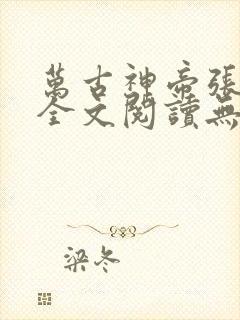 萬古神帝張
全文閱讀無
梁冬